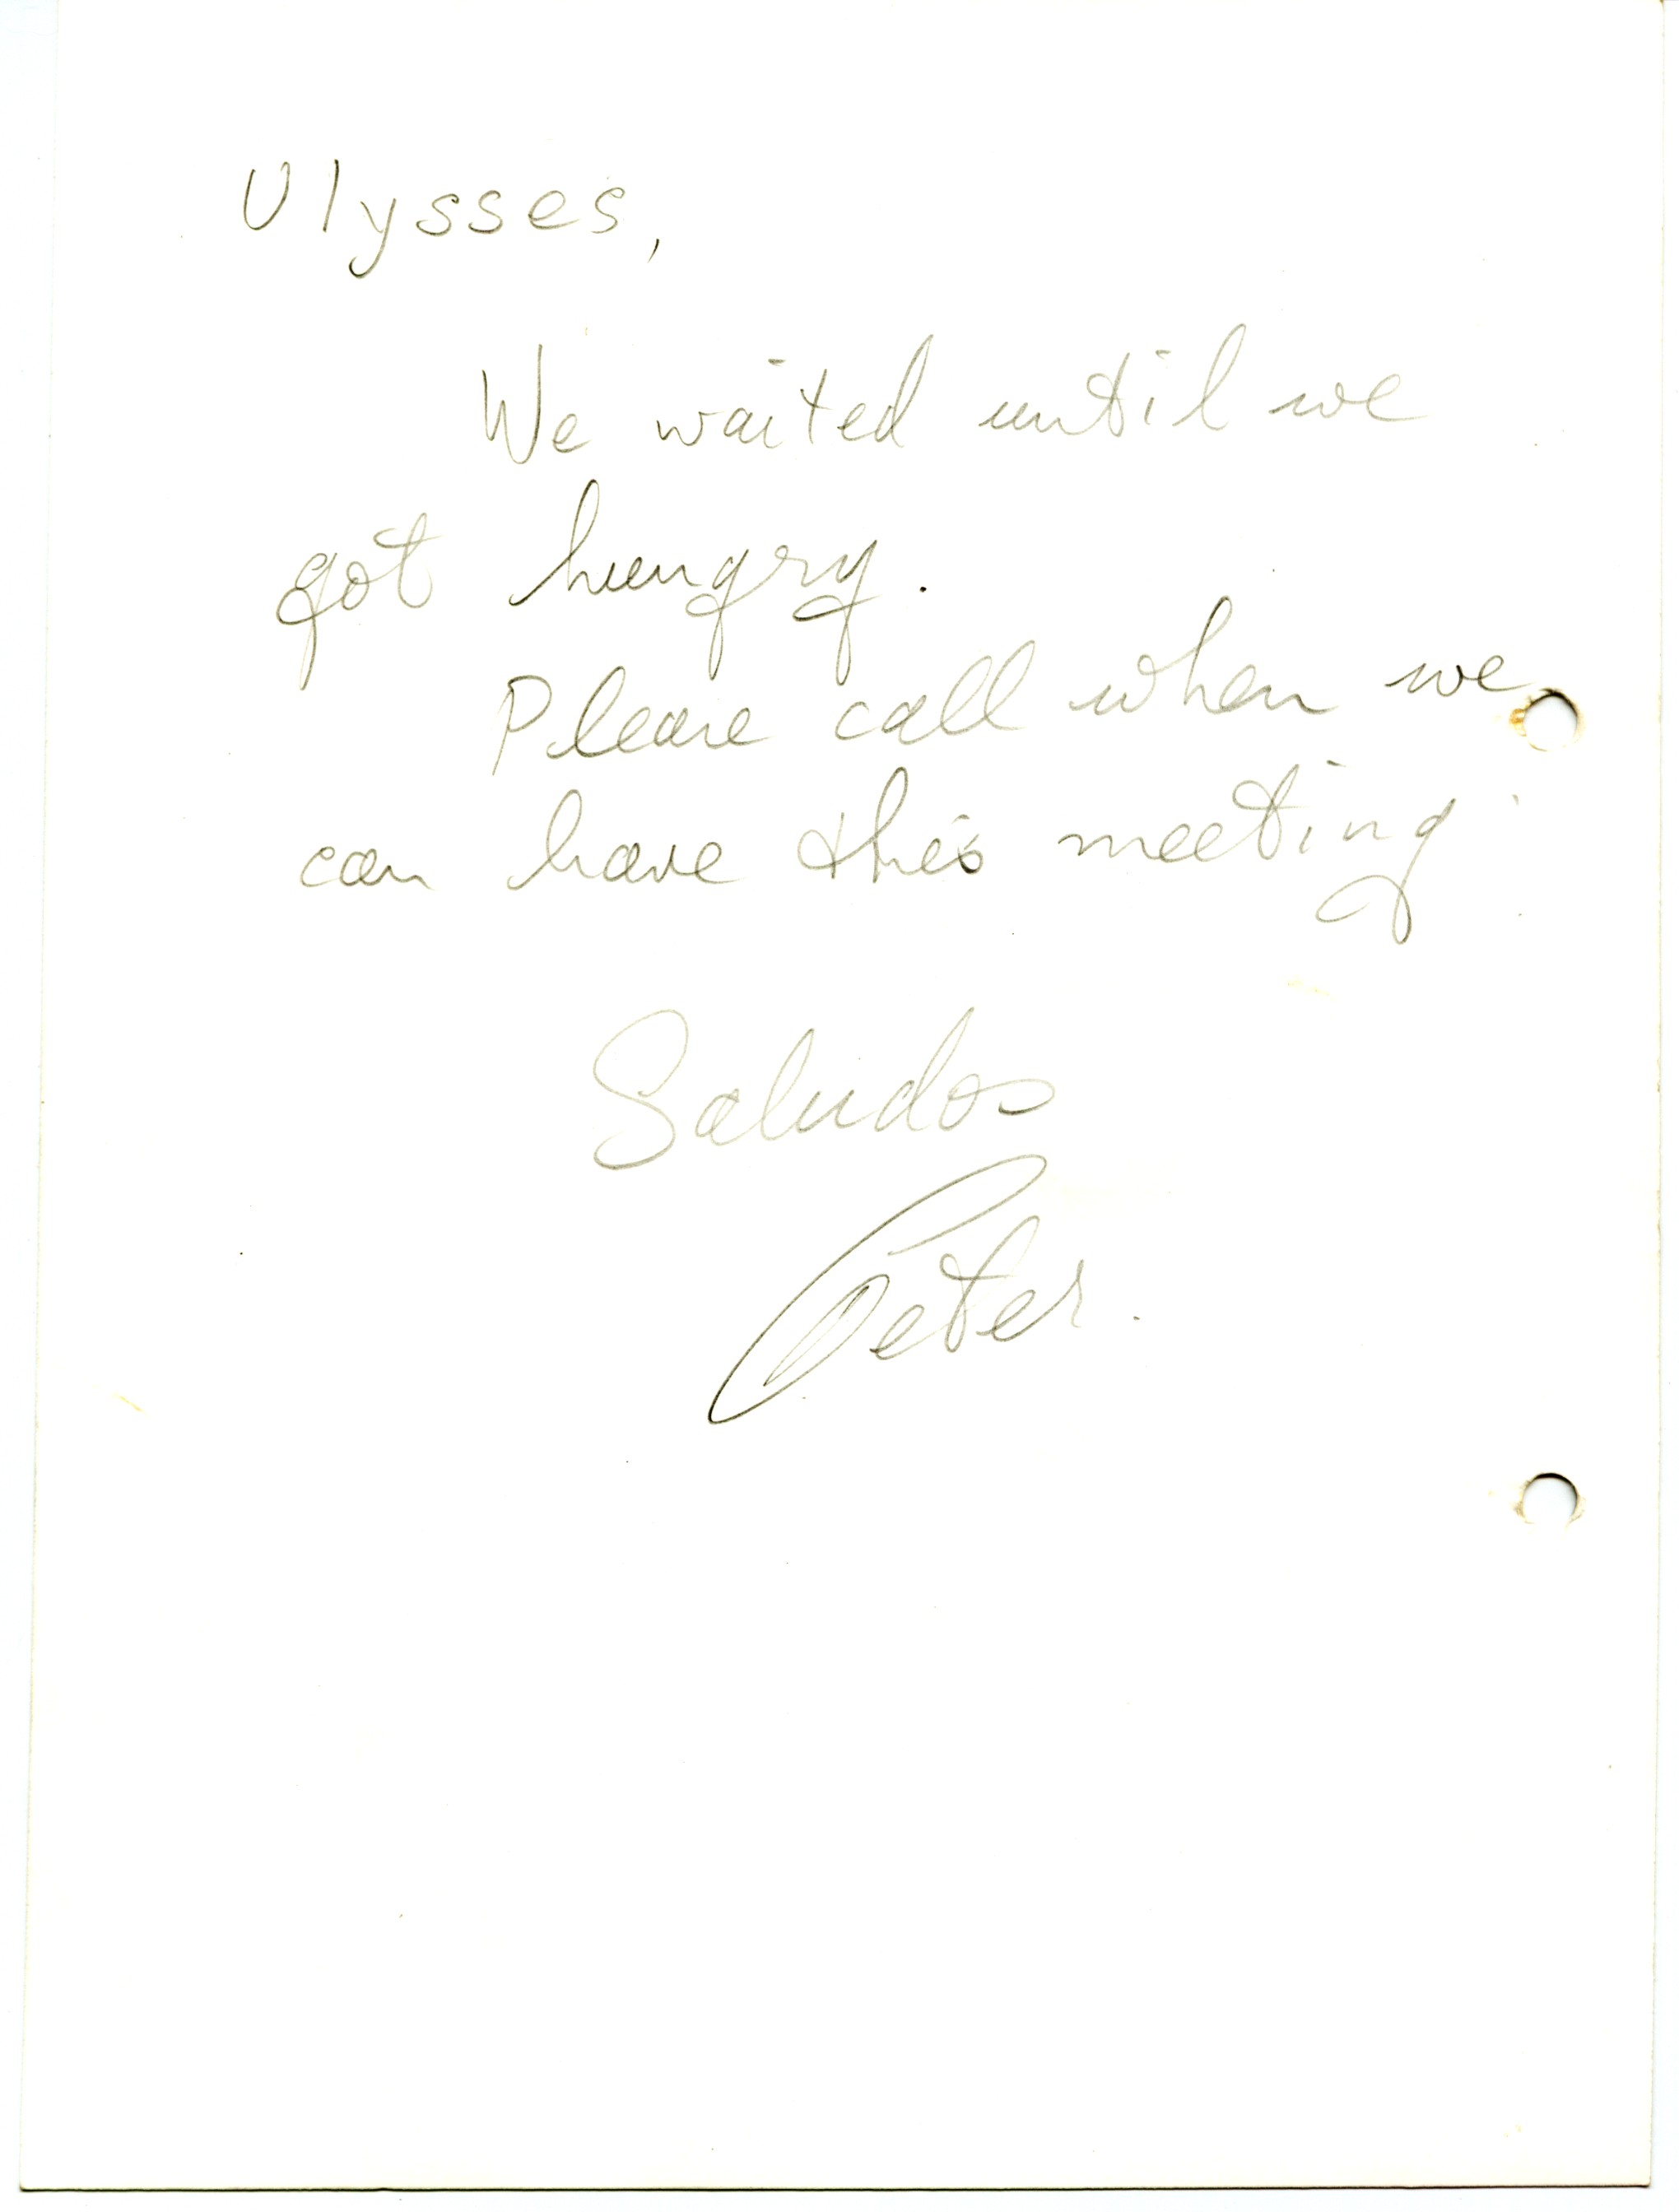 Ulysses,
We waited until we
got hungry.
Please call when we
can have this meeting
Saludos
Peter.